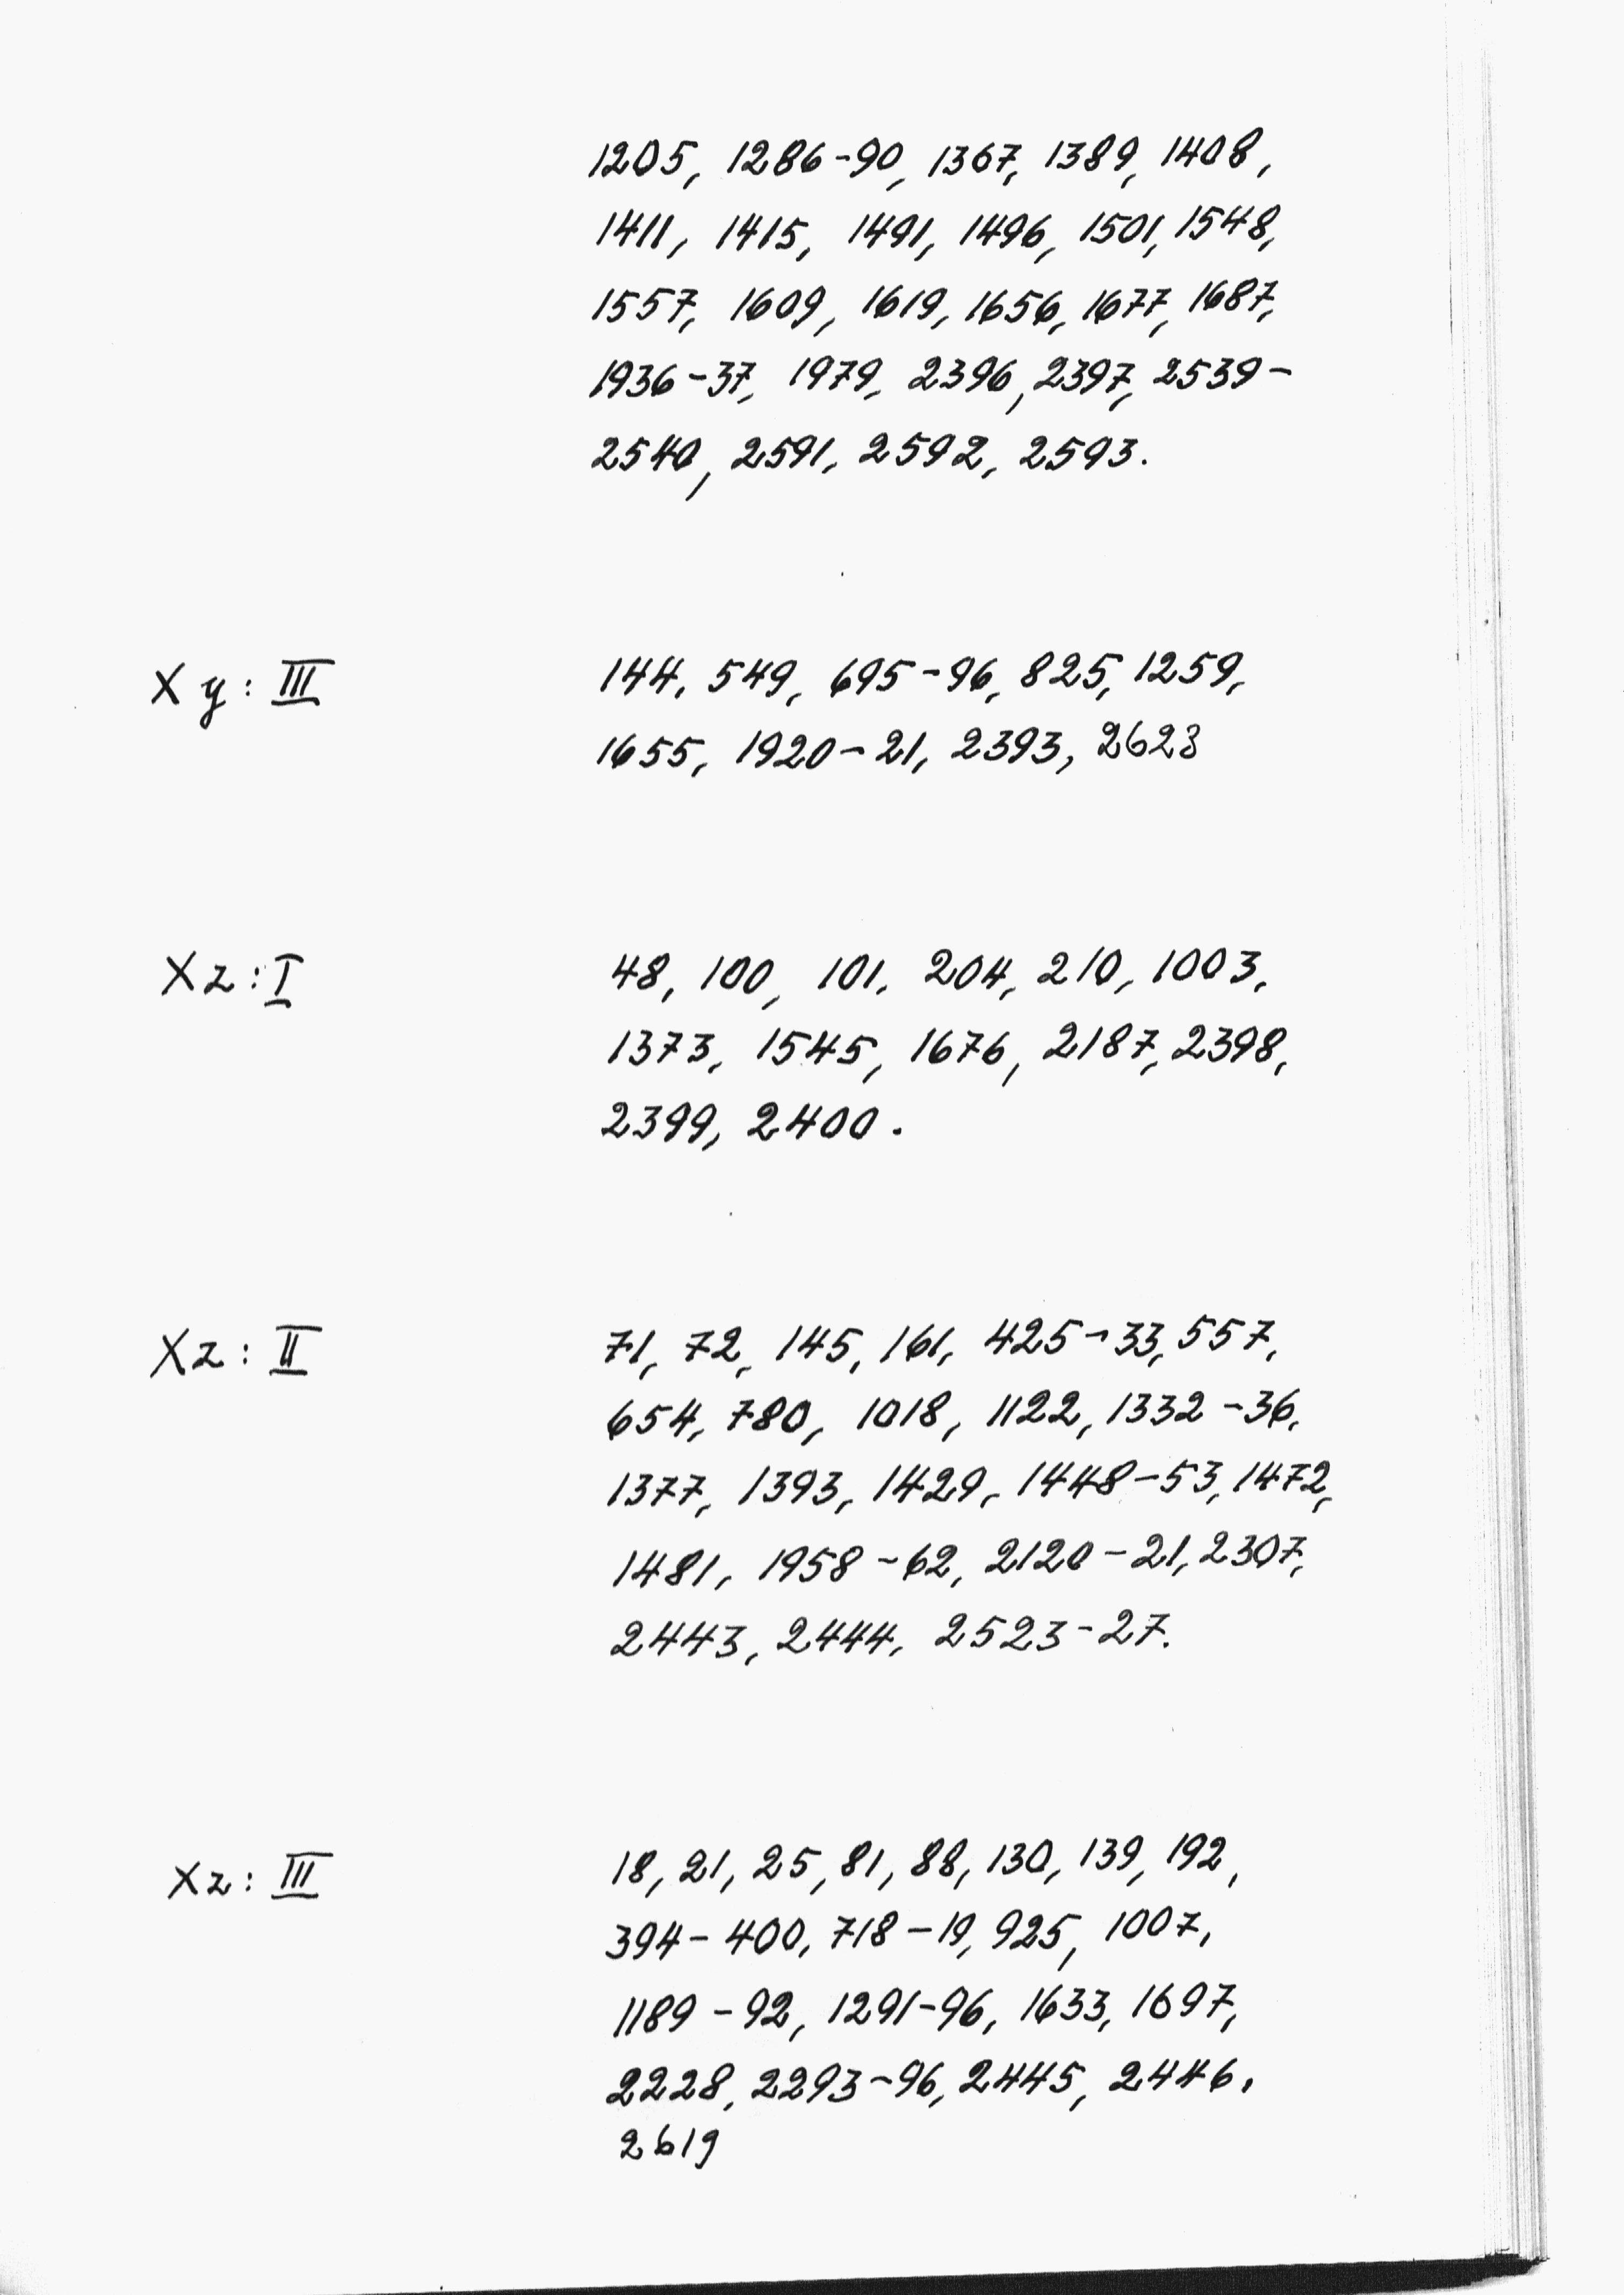 1205, 1286-90, 1367, 1389, 1408,
1411, 1415, 1491, 1496, 1501, 1548,
1557, 1609, 1619, 1656, 1677, 1687,
1936-37, 1979, 2396, 2397, 2539-
2540, 2591, 2592, 2593.
Xy: III 144, 549, 695-96, 825, 1259,
1655, 1920-21, 2393, 2623
Xz: I 48, 100, 101, 204, 210, 1003,
1373, 1545, 1676, 2187, 2398,
2399, 2400.
Xz: II 71, 72, 145, 161, 425-33, 557,
654, 780, 1018, 1122, 1332-36,
1377, 1393, 1429, 1448-53, 1472,
1481, 1958-62, 2120-21, 2307,
2443, 2444, 2523-27.
Xz: III 18, 21, 25, 81, 88, 130, 139, 192,
394-400, 718-19, 925, 1007,
1189-92, 1291-96, 1633, 1697,
2228, 2293-96, 2445, 2446.
2619